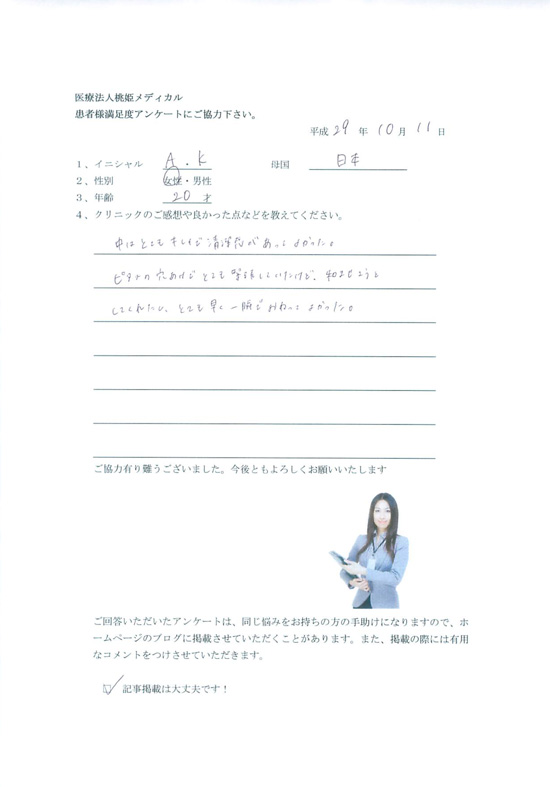 医療法人桃姫メディカル
患者様満足度アンケートにご協力下さい。
平成 29 年 10 月 11 日
1、イニシャル A . K 母国 日本
2、性別 女性・男性
3、年齢 20 才
4、クリニックのご感想や良かった点などを教えてください。
中はとてもキレイで清潔感があってよかった。
ピアスの穴あけでとても緊張していたけど、和ませようと
してくれたし、とても早く一瞬でおわってよかった。
ご協力有り難うございました。今後ともよろしくお願いいたします
ご回答いただいたアンケートは、同じ悩みをお持ちの方の手助けになりますので、ホ
ームページのブログに掲載させていただくことがあります。また、掲載の際には有用
なコメントをつけさせていただきます。
☑ 記事掲載は大丈夫です！